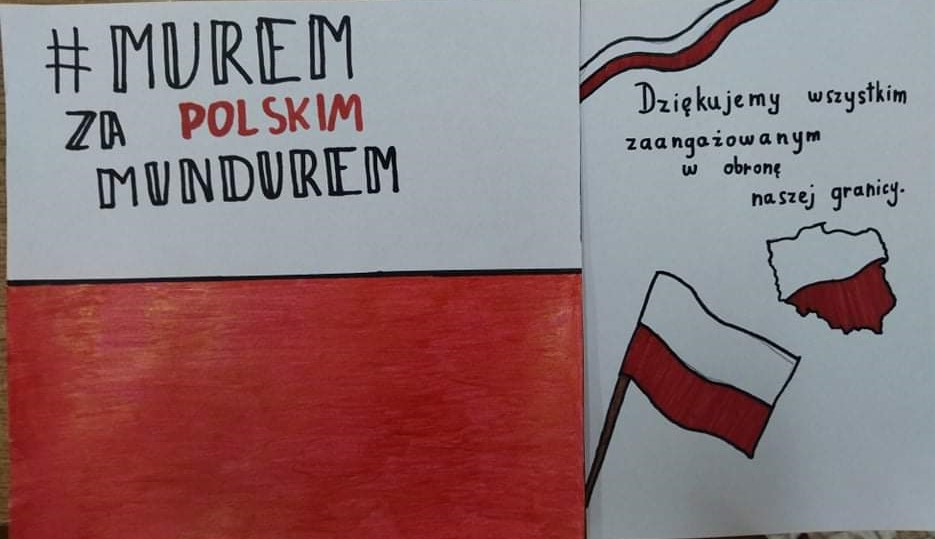 #MUREM
ZA POLSKIM
MUNDUREM
Dziękujemy wszystkim
zaangażowanym
w obronę
naszej granicy.